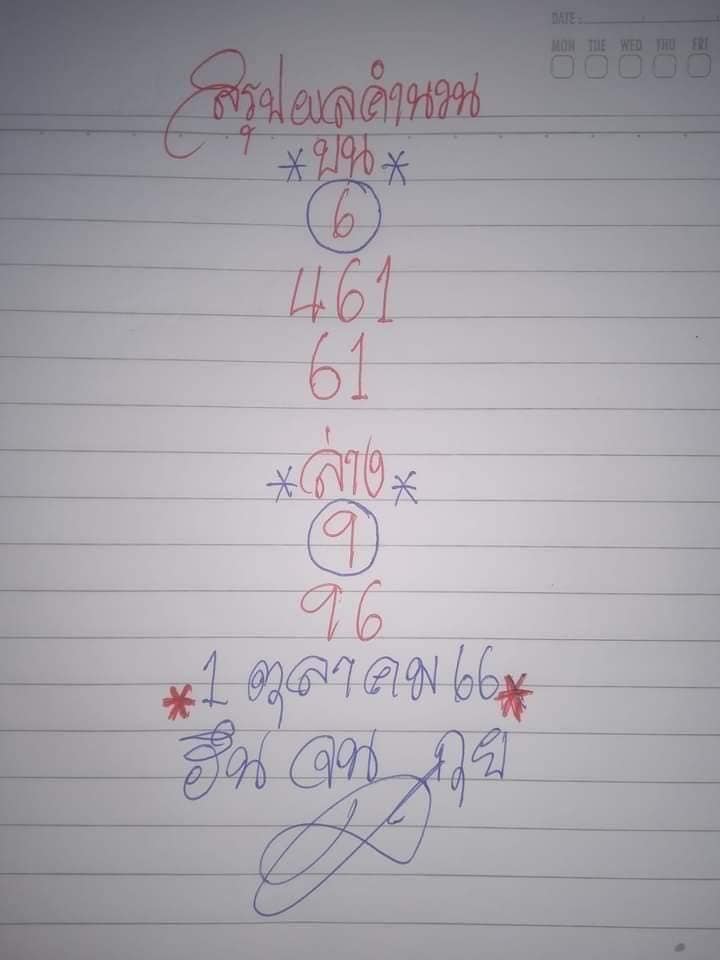 DATE:
MON TUE WED THU FRI
สรุปผลคำนวน
*บน*
6
461
61
*ล่าง*
9
96
*1 ตุลาคม 66*
ฮึน จน